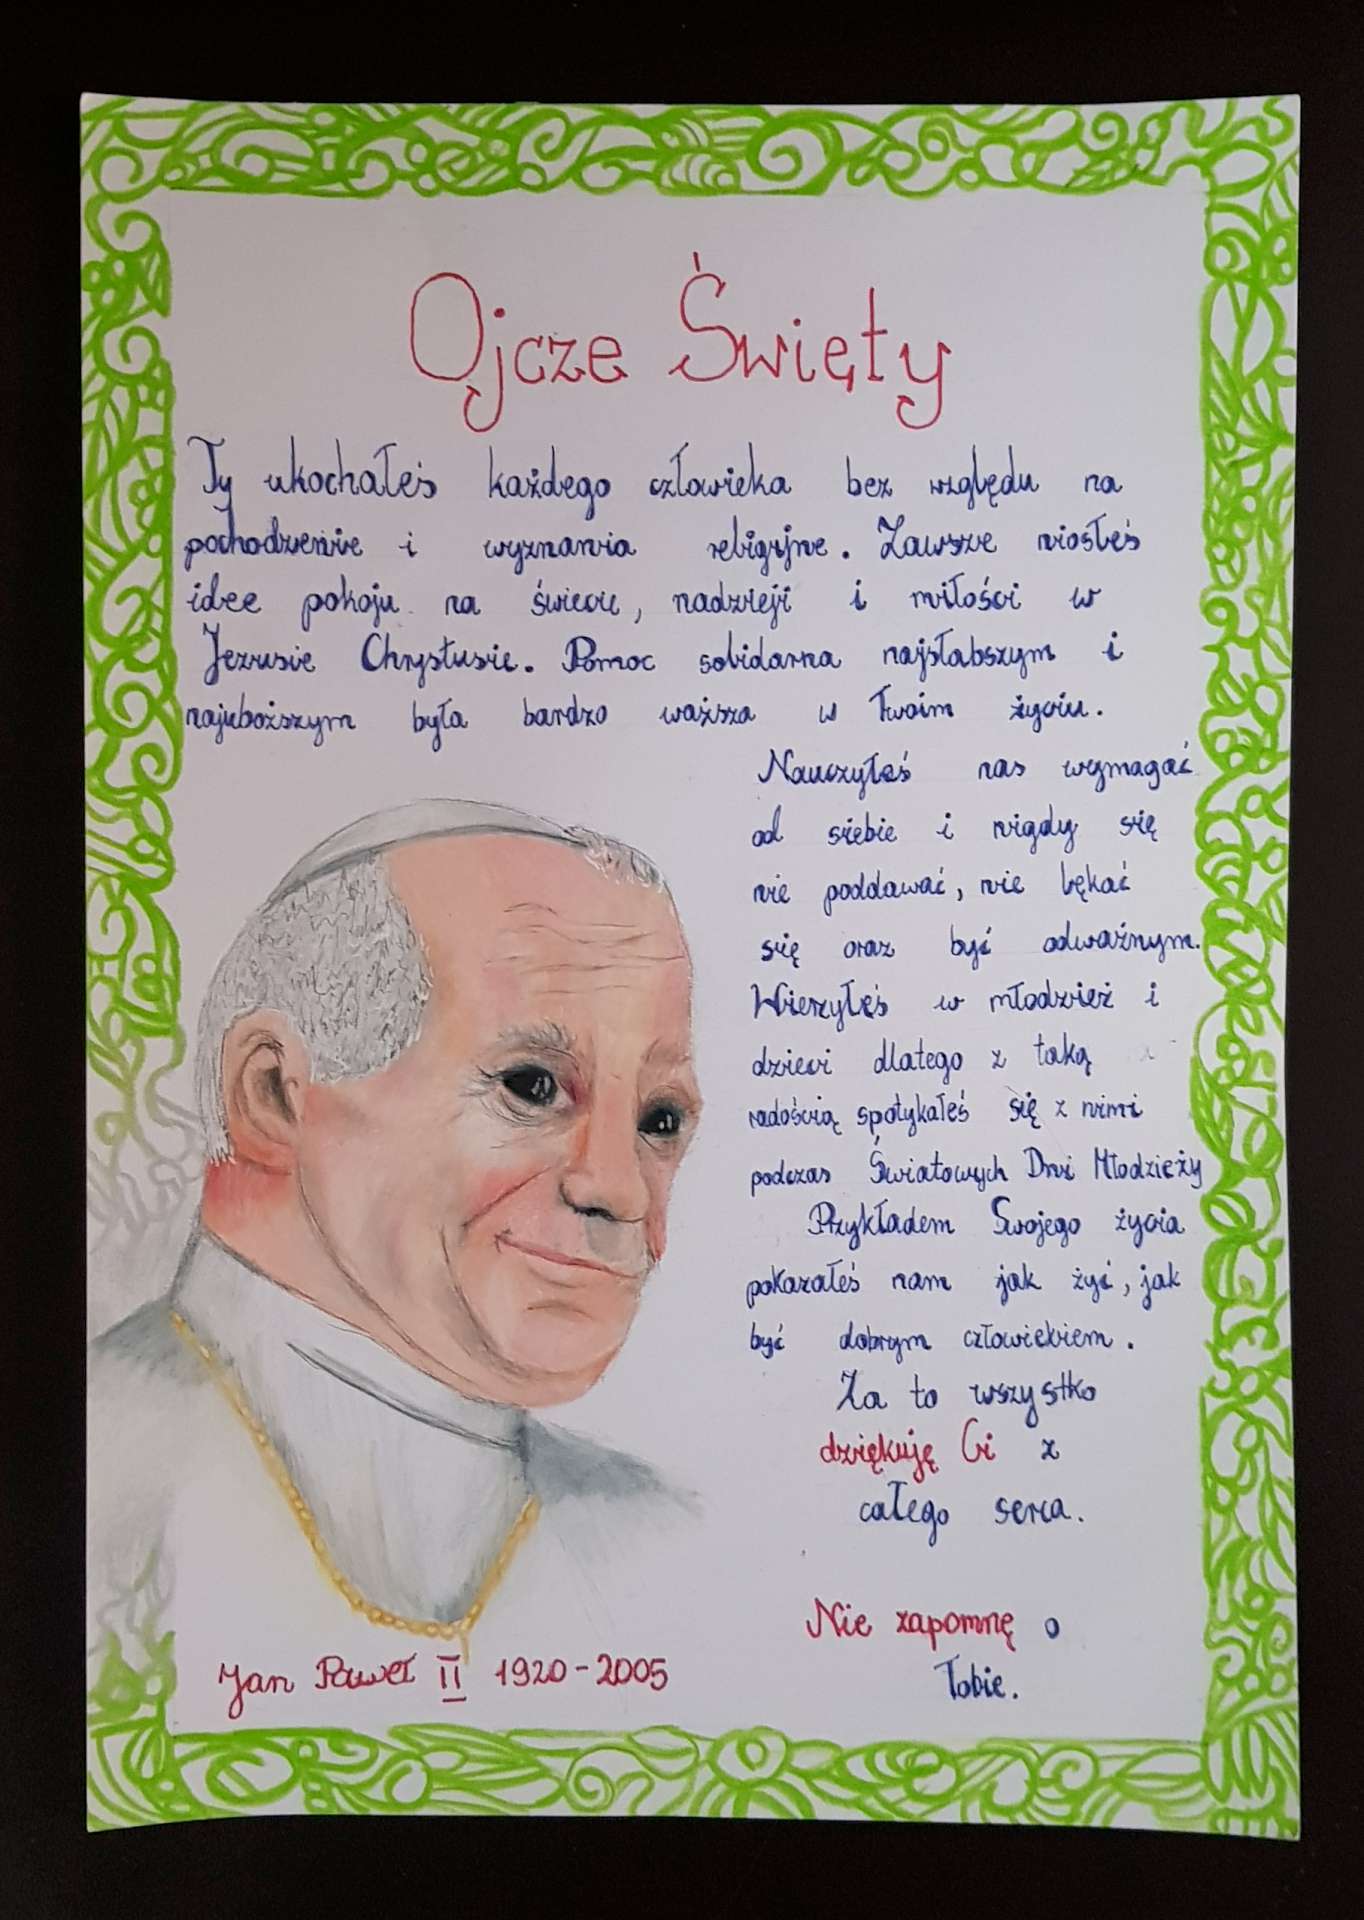 Ojcze Święty
Ty ukochałeś każdego człowieka bez względu na
pochodzenie i wyznania religijne. Zawsze niosłeś
idee pokoju na świecie, nadzieji i miłości w
Jezusie Chrystusie. Pomoc solidarna najsłabszym i
najuboższym była bardzo waższa w Twoim życiu.
Nauczyłeś nas wymagać
od siebie i nigdy się
nie poddawać, nie lękać
się oraz być odważnym.
Wierzyłeś w młodzież i
dzieci dlatego z taką
radością spotykałeś się z nimi
podczas Światowych Dni Młodzieży
Przykładem Swojego życia
pokazałeś nam jak żyć, jak
być dobrym człowiekiem.
Za to wszystko
dziękuję Ci z
całego serca.
Nie zapomnę o
Tobie.
Jan Paweł II 1920-2005